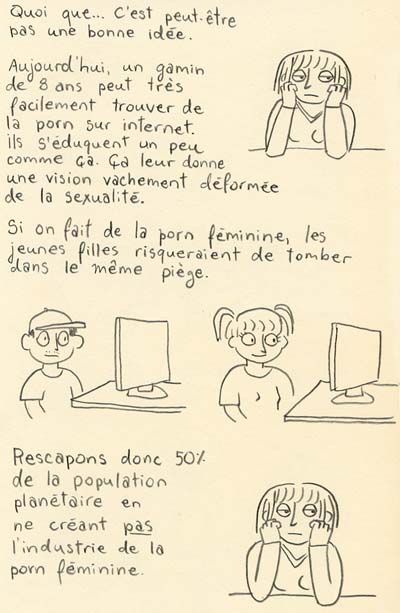 Quoi que... C'est peut-être
pas une bonne idée.
Aujourd'hui, un gamin
de 8 ans peut très
facilement trouver de
la porn sur internet.
ils s'éduquent un peu
comme ça. Ça leur donne
une vision vachement déformée
de la sexualité.
Si on fait de la porn féminine, les
jeunes filles risqueraient de tomber
dans le même piège.
Rescapons donc 50%
de la population
planétaire en
ne créant pas
l'industrie de la
porn féminine.